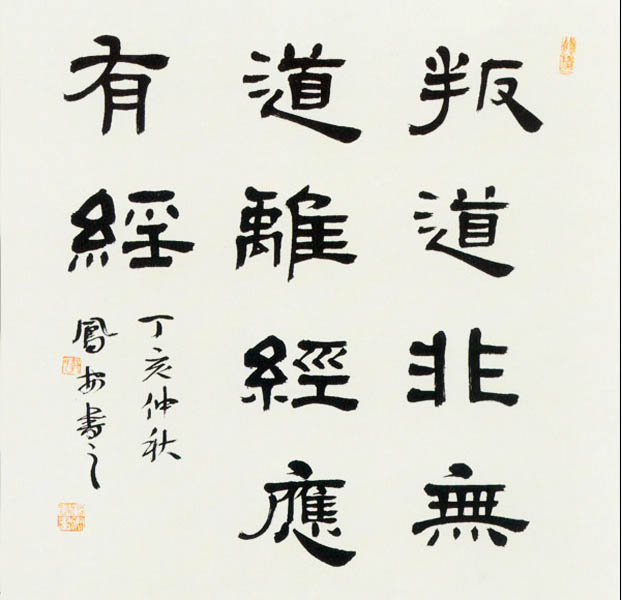 叛道非無
道離經應
有經
丁亥仲秋
鳳安書之